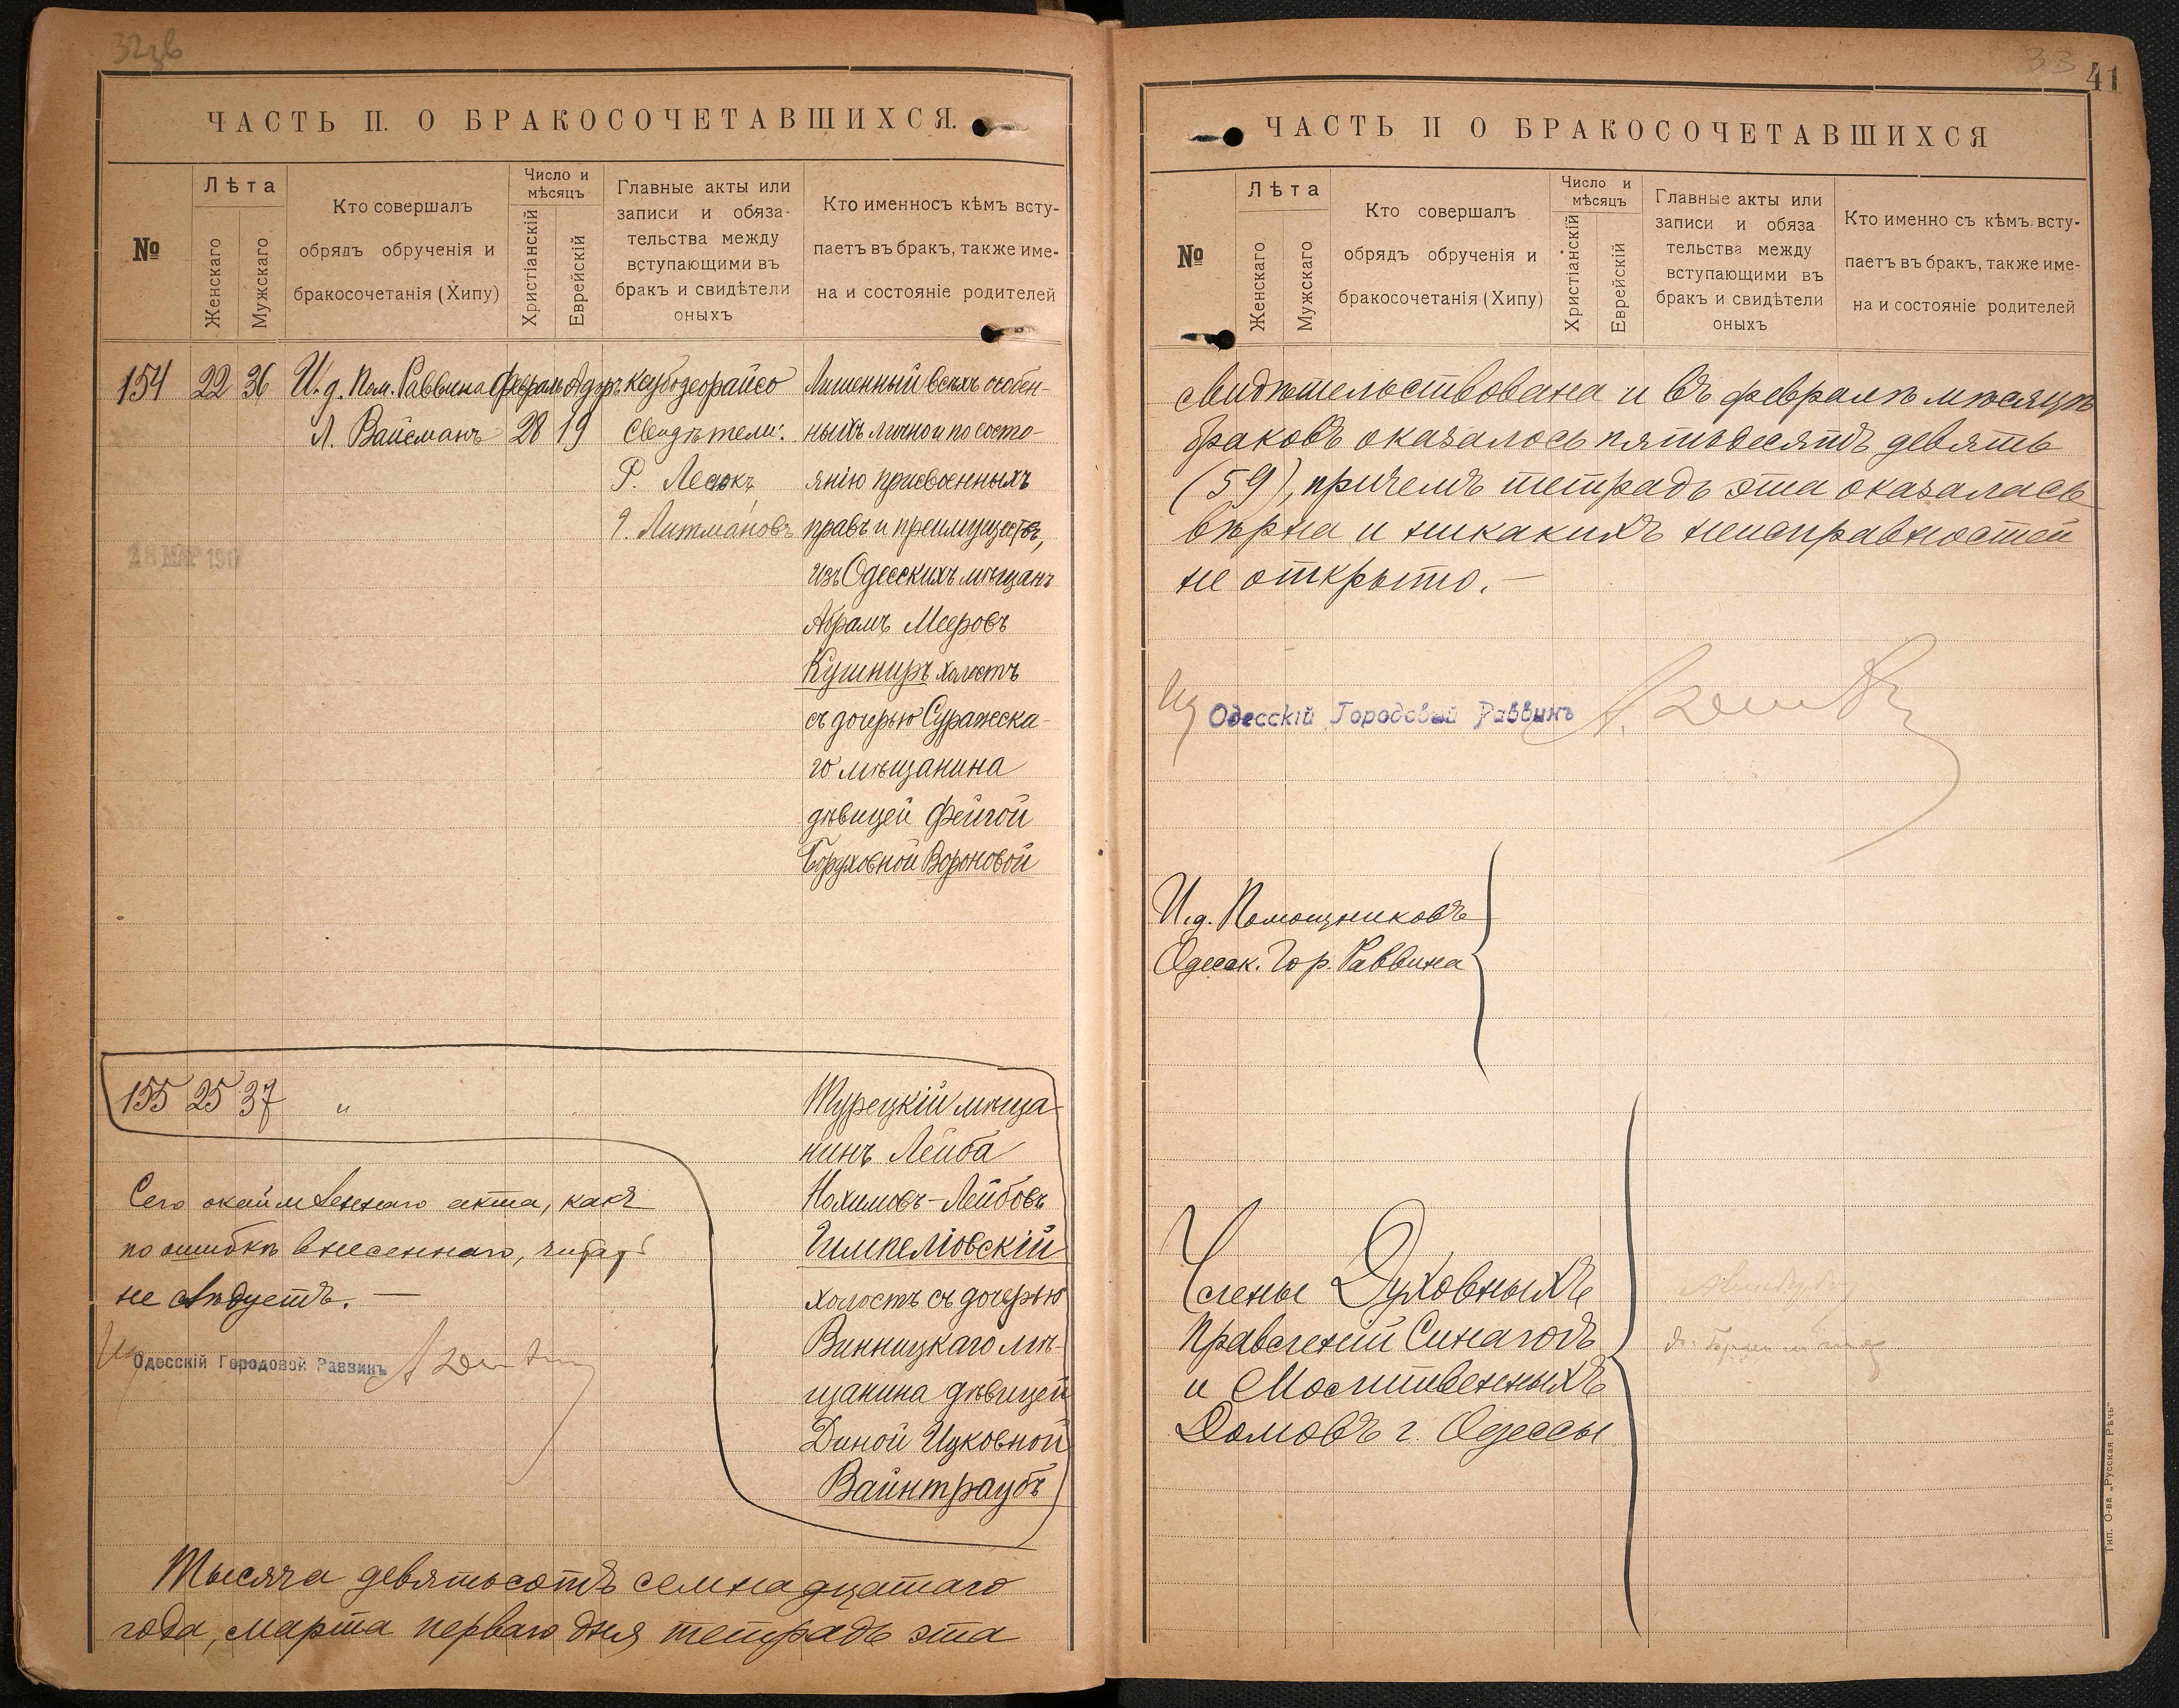 ЧАСТЬ II. О БРАКОСОЧЕТАВШИХСЯ.
№
Лѣта
Женскаго
Мужскаго
Кто совершалъ
обрядъ обрученія и
бракосочетанія (Хипу)
Число и
мѣсяцъ
Христіанскій
Еврейскій
Главные акты или
записи и обяза-
тельства между
вступающими въ
бракъ и свидѣтели
оныхъ
Кто именносъ кѣмъ всту-
паетъ въ бракъ, также име-
на и состояніе родителей
154 22 36 И. д. Пом. Раввина Февраль Адаръ
Л. Вайсманъ 28 19
Свидѣтели:
Р.
Литмановъ
Лишенный всѣхъ особен-
ныхъ лично и по состо-
янію присвоенныхъ
правъ и преимуществъ,
изъ Одесскихъ мѣщанъ
Абрамъ Мееровъ
Кушниръ холостъ
съ дочерью Суражска-
го мѣщанина
дѣвицей Фейгой
Боруховной Вороновой
28 МАР 191
155 25 37 "
Турецкій мѣща-
нинъ Лейба
Нохимовъ-Лейбовъ
Гимпеліовскій
холостъ съ дочерью
Винницкаго мѣ-
щанина дѣвицей
Диной Ицковной
Вайнтраубъ
Сего окаймленнаго акта, какъ
по ошибкѣ внесеннаго, читать
не слѣдуетъ. —
Одесскій Городовой Раввинъ
Тысяча девятьсотъ семнадцатаго
года, марта перваго дня тетрадь эта
33
41
ЧАСТЬ II О БРАКОСОЧЕТАВШИХСЯ
№
Лѣта
Женскаго
Мужскаго
Кто совершалъ
обрядъ обрученія и
бракосочетанія (Хипу)
Число и
мѣсяцъ
Христіанскій
Еврейскій
Главные акты или
записи и обяза
тельства между
вступающими въ
бракъ и свидѣтели
оныхъ
Кто именно съ кѣмъ всту-
паетъ въ бракъ, также име-
на и состояніе родителей
свидѣтельствована и въ февралѣ мѣсяцѣ
браковъ оказалось пятьдесятъ девять
(59), причемъ тетрадь эта оказалась
вѣрна и никакихъ неисправностей
не открыто. —
Одесскій Городовый Раввинъ
И. д. Помощниковъ
Одесск. Гор. Раввина
Члены Духовныхъ
Правленій Синагогъ
и Молитвенныхъ
Домовъ г. Одессы
Тип. О-ва „Русская Рѣчь"